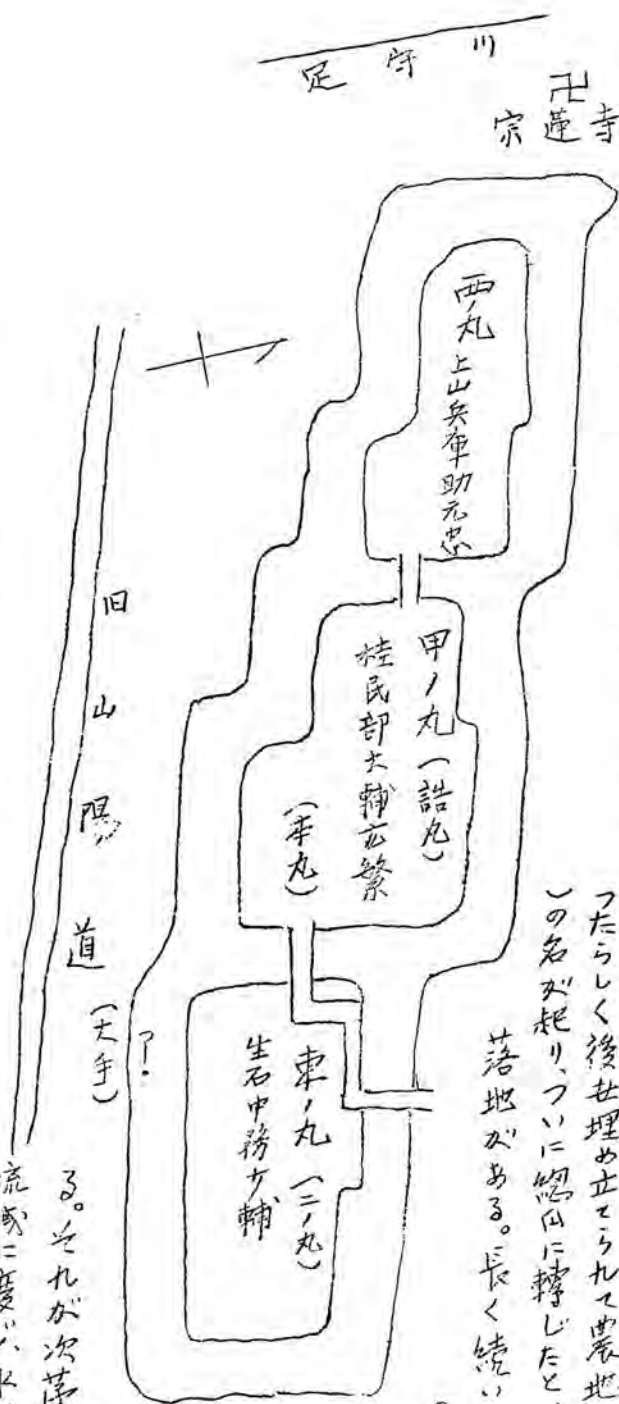 足守川
卍
宗蓮寺
西ノ丸 上山兵庫助元忠
甲ノ丸(詰丸)
桂民部大輔広繁
(本丸)
東ノ丸(二ノ丸)
生石中務少輔
旧山陽道
(大手)
?
つたらしく後世埋め立てられて農地
)の名が起り、ついに
に轉じたと
落地がある。長く続い
る。それが次第
流域に